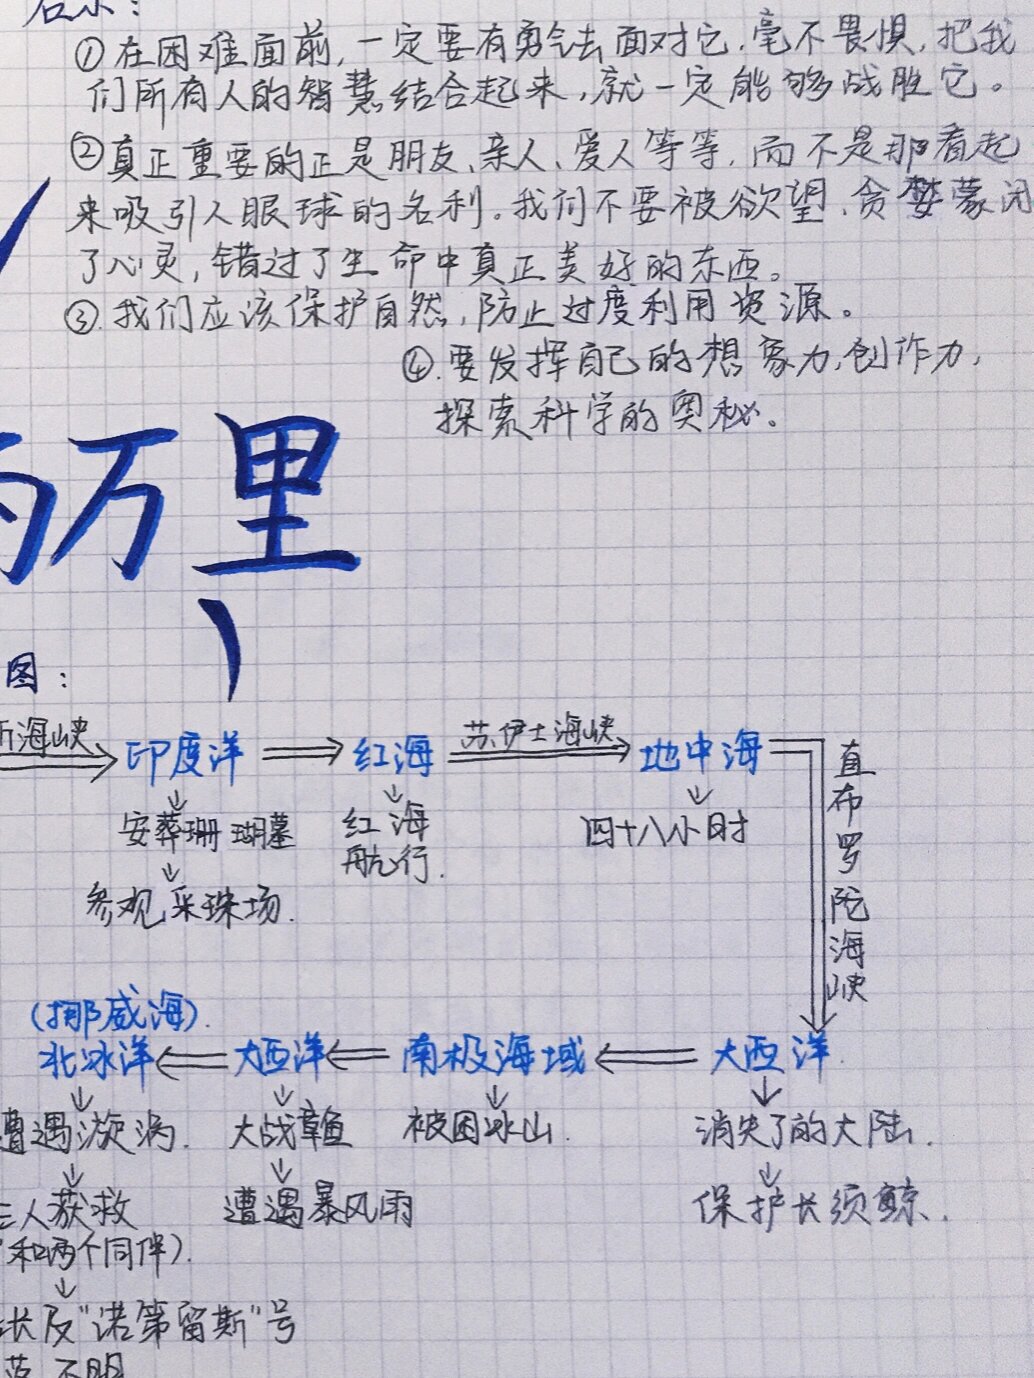 启示：
①在困难面前，一定要有勇气去面对它，毫不畏惧，把我
们所有人的智慧结合起来，就一定能够战胜它。
②真正重要的正是朋友、亲人、爱人等等，而不是那看起
来吸引人眼球的名利。我们不要被欲望、贪婪蒙闭
了心灵，错过了生命中真正美好的东西。
③.我们应该保护自然，防止过度利用资源。
④.要发挥自己的想象力，创作力，
探索科学的奥秘。
万里
图：
海峡
印度洋 红海 苏伊士海峡 地中海
直布罗陀海峡
安葬珊瑚墓 红海 四十八小时
航行.
参观采珠场.
(挪威海).
北冰洋 大西洋 南极海域 大西洋.
遭遇漩涡. 大战章鱼 被困冰山. 消失了的大陆.
三人获救 遭遇暴风雨 保护长须鲸.
和两个同伴).
长及"诺第留斯"号
不明